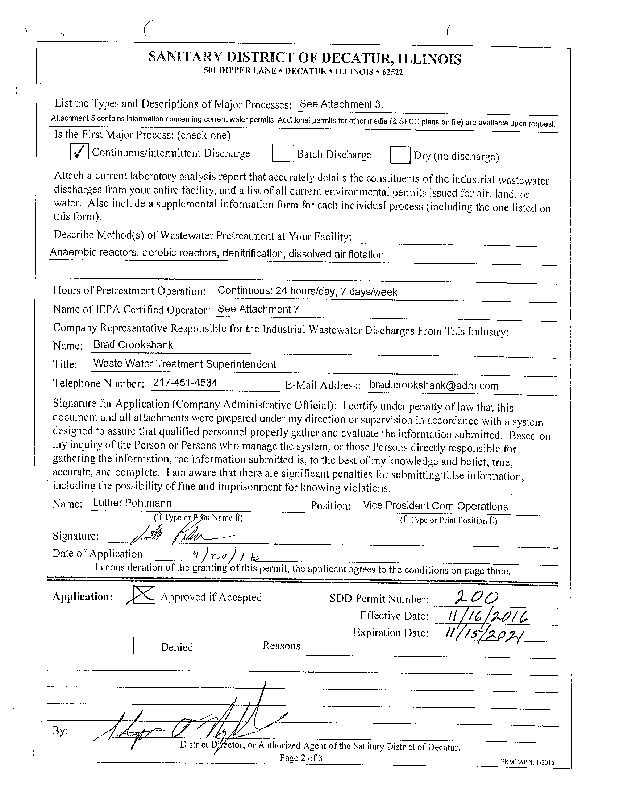 SANITARY DISTRICT OF DECATUR, ILLINOIS
501 DIPPER LANE • DECATUR • ILLINOIS • 62522
List the Types and Descriptions of Major Processes: See Attachment 3.
Attachment 5 contains information concerning current water permits. Additional permits for other media (& SPCC plans on file) are available upon request.
Is the First Major Process: (check one)
✓ Continuous/Intermittent Discharge Batch Discharge Dry (no discharge)
Attach a current laboratory analysis report that accurately details the constituents of the industrial wastewater
discharges from your entire facility, and a list of all current environmental permits issued for air, land, or
water. Also include a supplemental information form for each individual process (including the one listed on
this form).
Describe Method(s) of Wastewater Pretreatment at Your Facility:
Anaerobic reactors, aerobic reactors, denitrification, dissolved air flotation
Hours of Pretreatment Operation: Continuous: 24 hours/day, 7 days/week
Name of IEPA Certified Operator: See Attachment 7
Company Representative Responsible for the Industrial Wastewater Discharges From This Industry:
Name: Brad Crookshank
Title: Waste Water Treatment Superintendent
Telephone Number: 217-451-4534 E-Mail Address: brad.crookshank@adm.com
Signature for Application (Company Administrative Official): I certify under penalty of law that this
document and all attachments were prepared under my direction or supervision in accordance with a system
designed to assure that qualified personnel properly gather and evaluate the information submitted. Based on
my inquiry of the Person or Persons who manage the system, or those Persons directly responsible for
gathering the information, the information submitted is, to the best of my knowledge and belief, true,
accurate, and complete. I am aware that there are significant penalties for submitting false information,
including the possibility of fine and imprisonment for knowing violations.
Name: Luther Pohlmann Position: Vice President Corn Operations
(Type or Print Name) (Type or Print Position)
Signature:
Date of Application
In consideration of the granting of this permit, the applicant agrees to the conditions on page three.
Application: X Approved if Accepted SDD Permit Number: 200
Effective Date: 11/16/2016
Expiration Date: 11/15/2021
Denied Reasons
By:
District Director, or Authorized Agent of the Sanitary District of Decatur.
Page 2 of 3